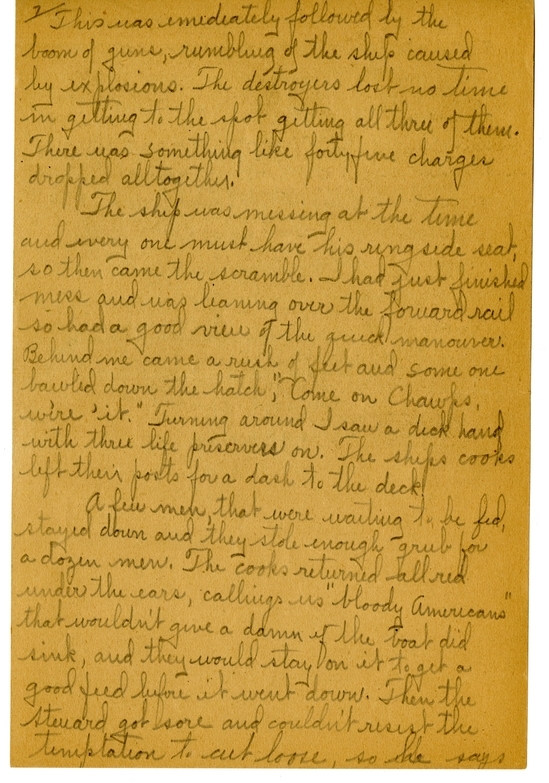 2/ This was emediately followed by the
boom of guns, rumbling of the ship caused
by explosions. The destroyers lost no time
in getting to the spot getting all three of them.
There was something like forty five charges
dropped alltogether.
The ship was messing at the time
and every one must have his ringside seat,
so then came the scramble. I had just finished
mess and was leaning over the forward rail
so had a good view of the quick manouver.
Behind me came a rush of feet and some one
bawled down the hatch, "Come on Chawps,
we're 'it." Turning around I saw a deck hand
with three life preservers on. The ships cooks
left their posts for a dash to the deck.
A few men, that were waiting to be fed,
stayed down and they stole enough grub for
a dozen men. The cooks returned all red
under the ears, callings us "bloody Americans"
that wouldn't give a damn if the boat did
sink, and they would stay on it to get a
good feed before it went down. Then the
steward got sore and couldn't resist the
temptation to cut loose, so he says